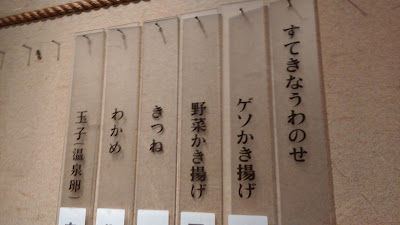 すてきなうわのせ
ゲソかき揚げ
野菜かき揚げ
きつね
わかめ
玉子(温泉卵)